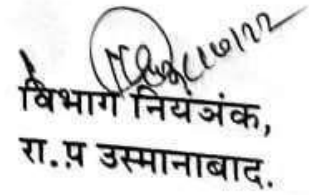 विभाग नियत्रंक,
रा.प उस्मानाबाद.